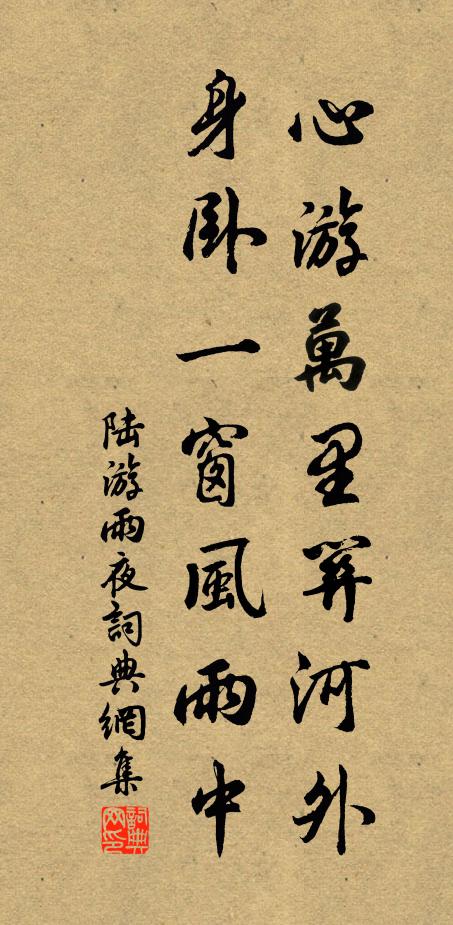 心游萬里關河外
身臥一窗風雨中
陆游雨夜詞典網集
詞典网印